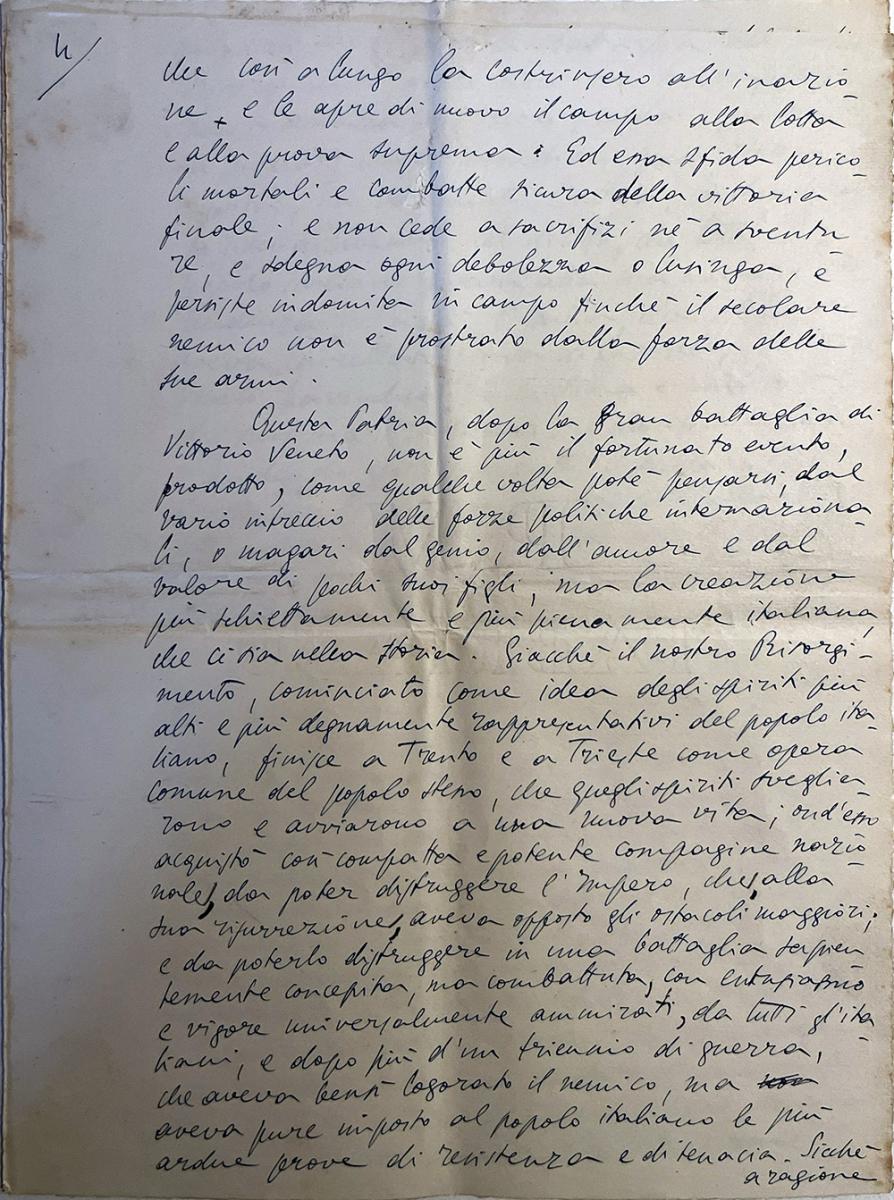 4/
che così a lungo la costrinsero all'inazio
ne, e le apre di nuovo il campo alla lotta
e alla prova suprema. Ed essa sfida perico
li mortali e combatte sicura della vittoria
finale; e non cede a sacrifizi né a sventu
re, e sdegna ogni debolezza o lusinga, e
persiste indomita in campo finché il secolare
nemico non è prostrato dalla forza delle
sue armi.
Questa Patria, dopo la gran battaglia di
Vittorio Veneto, non è più il fortunato evento,
prodotto, come qualche volta poté pensarsi, dal
vario intreccio delle forze politiche internaziona
li, o magari dal genio, dall'amore e dal
valore di pochi suoi figli, ma la creazione
più schiettamente e più pienamente italiana,
che ci sia nella storia. Giacché il nostro Risorgi-
mento, cominciato come idea degli spiriti più
alti e più degnamente rappresentativi del popolo ita-
liano, finisce a Trento e a Trieste come opera
comune del popolo stesso, che quegli spiriti sveglia-
rono e avviarono a una nuova vita; ond'esso
acquistò così compatta e potente compagine nazio
nale, da poter distruggere l'Impero, che, alla
sua risurrezione, aveva opposto gli ostacoli maggiori;
e da poterlo distruggere in una battaglia sapien
temente concepita, ma combattuta, con entusiasmo
e vigore universalmente ammirati, da tutti gl'ita
liani, e dopo più d'un triennio di guerra,
che aveva bensì logorato il nemico, ma
aveva pure imposto al popolo italiano le più
ardue prove di resistenza e di tenacia. Sicché
a ragione